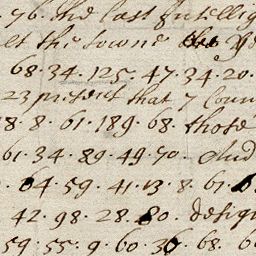 76. the last Intellig
at the towne
68. 34. 125. 47. 34. 20.
23 present that y Coun
8. 8. 61. 189. 68. those
61. 34. 89. 49. 70. And
64. 59. 41. 13. 8. 61.
42. 98. 28. 80. design
59. 55. 9. 60. 36. 68. 6